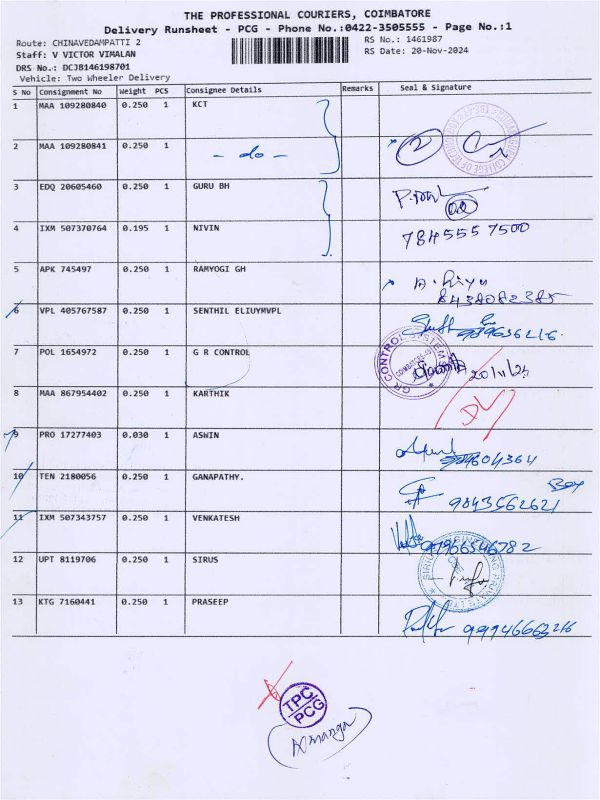 THE PROFESSIONAL COURIERS, COIMBATORE
Delivery Runsheet - PCG - Phone No.:0422-3505555 - Page No.:1
Route: CHINAVEDAMPATTI 2 RS No.: 1461987
Staff: V VICTOR VIMALAN RS Date: 20-Nov-2024
DRS No.: DCJB146198701
Vehicle: Two Wheeler Delivery
S No Consignment No Weight PCS Consignee Details Remarks Seal & Signature
1 MAA 109280840 0.250 1 KCT
2 MAA 109280841 0.250 1 - do - 2
3 EDQ 20605460 0.250 1 GURU BH
4 IXM 507370764 0.195 1 NIVIN 7845557500
5 APK 745497 0.250 1 RAMYOGI GH
8438082385
6 VPL 405767587 0.250 1 SENTHIL ELIUYMVPL
7 POL 1654972 0.250 1 G R CONTROL GR CONTROL SYSTEMS 20/11/24
8 MAA 867954402 0.250 1 KARTHIK DL
9 PRO 17277403 0.030 1 ASWIN
10 TEN 2180056 0.250 1 GANAPATHY. 9843562621
11 IXM 507343757 0.250 1 VENKATESH
12 UPT 8119706 0.250 1 SIRUS
13 KTG 7160441 0.250 1 PRASEEP
TPC
PCG